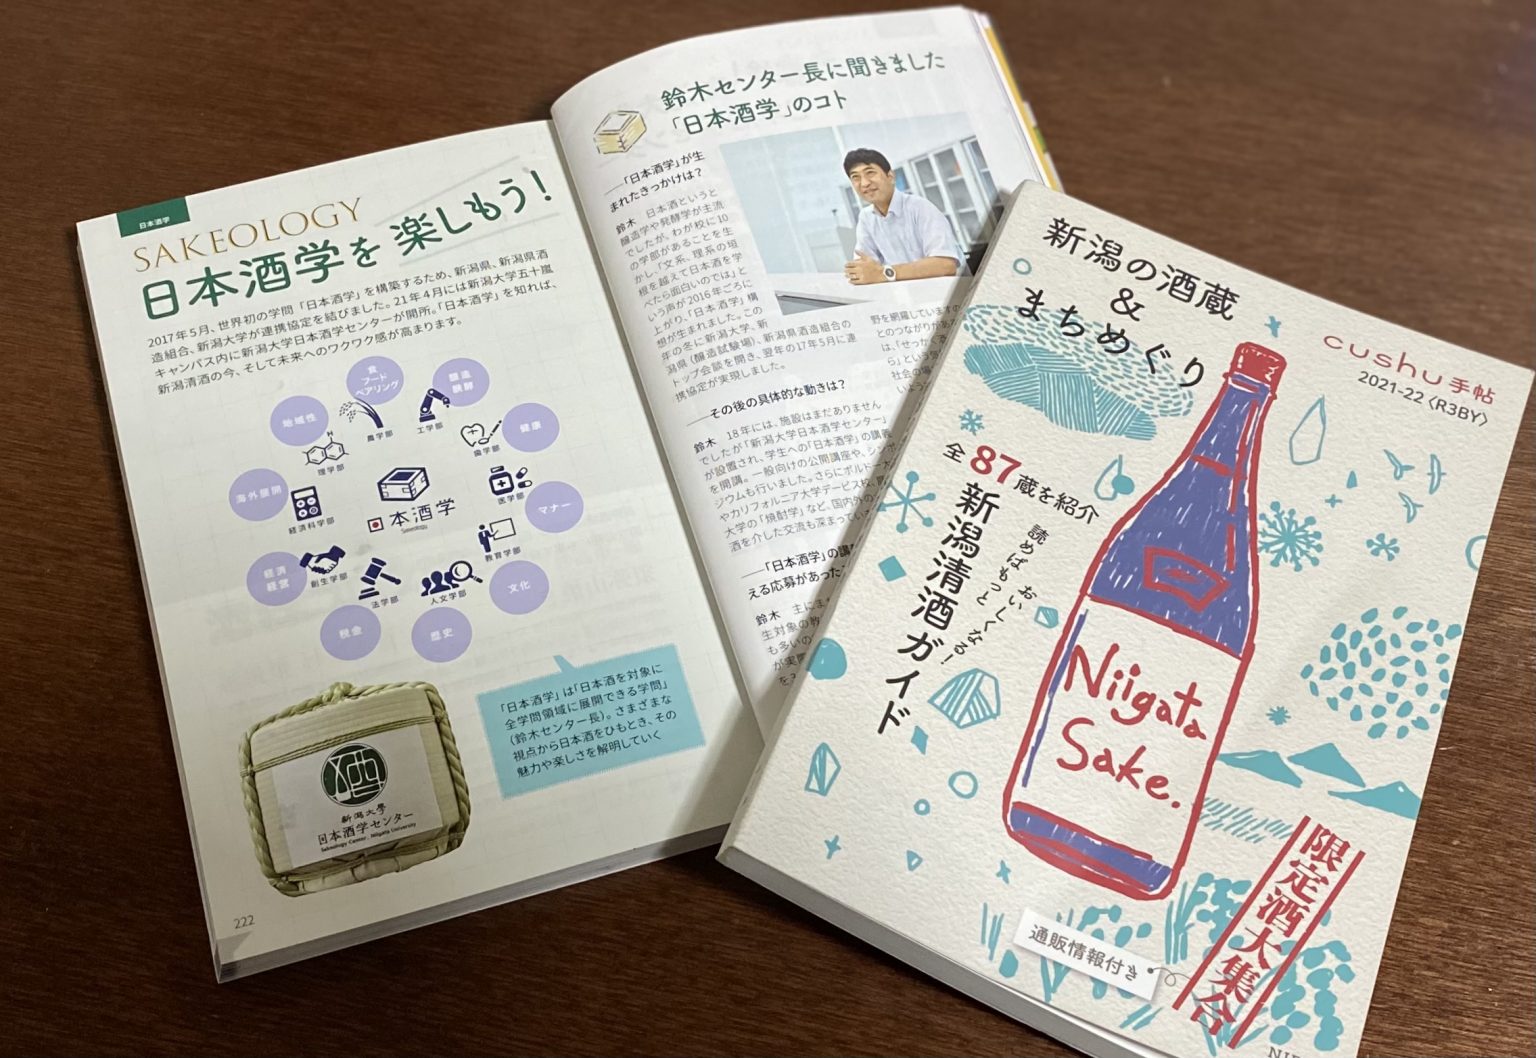 日本酒学
SAKEOLOGY
日本酒学を楽しもう!
2017年5月、世界初の学問「日本酒学」を構築するため、新潟県、新潟県酒
造組合、新潟大学が連携協定を結びました。21年4月には新潟大学五十嵐
キャンパス内に新潟大学日本酒学センターが開所。「日本酒学」を知れば、
新潟清酒の今、そして未来へのワクワク感が高まります。
食
フード
ペアリング
醸造
発酵
地域性
農学部
工学部
健康
歯学部
理学部
海外展開
医学部
経済科学部
日本酒学
Sakeology
マナー
教育学部
経済
経営
創生学部
法学部
人文学部
文化
税金
歴史
「日本酒学」は「日本酒を対象に
全学問領域に展開できる学問」
(鈴木センター長)。さまざまな
視点から日本酒をひもとき、その
魅力や楽しさを解明していく
新潟大學
日本酒学センター
Sakeology Center, Niigata University
222
鈴木センター長に聞きました
「日本酒学」のコト
──「日本酒学」が生
まれたきっかけは?
鈴木 日本酒というと
醸造学や発酵学が主流
でしたが、わが校に10
の学部があることを生
かし、「文系、理系の垣
根を越えて日本酒を学
べたら面白いのでは」と
いう声が2016年ごろに
上がり、「日本酒学」構
想が生まれました。この
年の冬に新潟大学、新
潟県(醸造試験場)、新潟県酒造組合の
トップ会談を開き、翌年の17年5月に連
携協定が実現しました。
──その後の具体的な動きは?
鈴木 18年には、施設はまだありません
でしたが「新潟大学日本酒学センター」
が設置され、学生への「日本酒学」の講義
を開講。一般向けの公開講座や、シンポ
ジウムも行いました。さらにボルドー
やカリフォルニア大学デービス校、
大学の「焼酎学」など、国内外の
酒を介した交流も深まってい
──「日本酒学」の講
える応募があった
鈴木 主に
生対象の教
も多いの
が実
野を網羅していますの
とのつながりが
は、「せっかく
ら」という
社会の
いよう
新潟の酒蔵
&
まちめぐり
cushu手帖
2021-22〈R3BY〉
全87蔵を紹介
読めばもっと
おいしくなる!
新潟清酒ガイド
Niigata
Sake.
限定酒大集合
通販情報付き